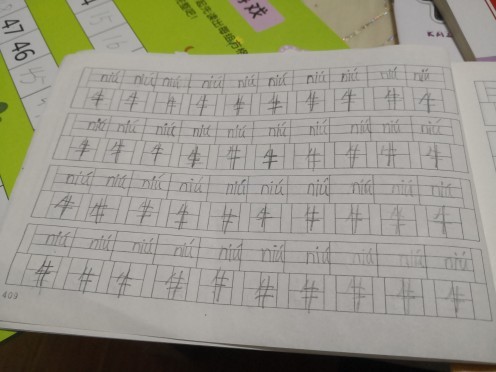 47
46
45
戏
niú niú niú niú niú niú niú niú niú niú
牛 牛 牛 牛 牛 牛 牛 牛 牛 牛
niú niú niú niú niú niú niú niú niú niú
牛 牛 牛 牛 牛 牛 牛 牛 牛 牛
niú niú niú niú niú niú niú niú niú niú
牛 牛 牛 牛 牛 牛 牛 牛 牛 牛
niú niú niú niú niú niú niú niú niú niú
牛 牛 牛 牛 牛 牛 牛 牛 牛 牛
409